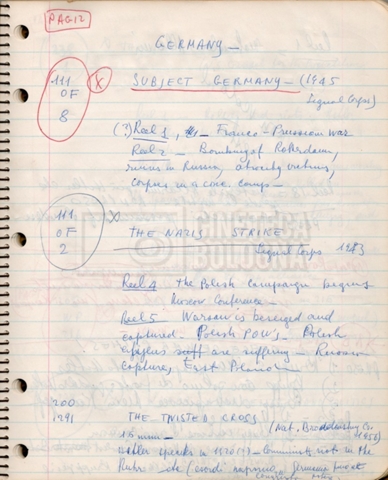 PAG 12
GERMANY –
111
OF
8
X
SUBJECT GERMANY – (1945
Signal Corps)
(?) Reel 1, – Franco-Prussian War
Reel 2 – Bombing of Rotterdam,
ruins in Russia, atrocity victims,
corpses in a conc. camp –
111
OF
2
X
THE NAZIS STRIKE
Signal Corps 1943
Reel 4 the Polish Campaign begins
Moscow Conference –
Reel 5 Warsaw is besieged and
captured – Polish POWs – Polish
are suffering – Russian
capture, East Poland –
200
1291
THE TWISTED CROSS
(Nat. Broadcasting Co.
1956)
16 mm –
Hitler speaks in – Communist riot in the
Ruhr